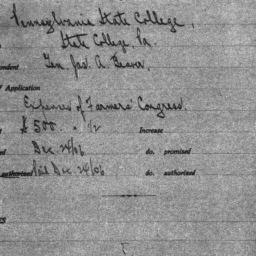 Pennsylvania State College,
State College, Pa.
Gen. Jas. A. Beaver,
Application
Expenses of Farmers' Congress.
$500. Increase
Dec. 24/06 do. promised
authorized Dec. 24/06 do. authorized